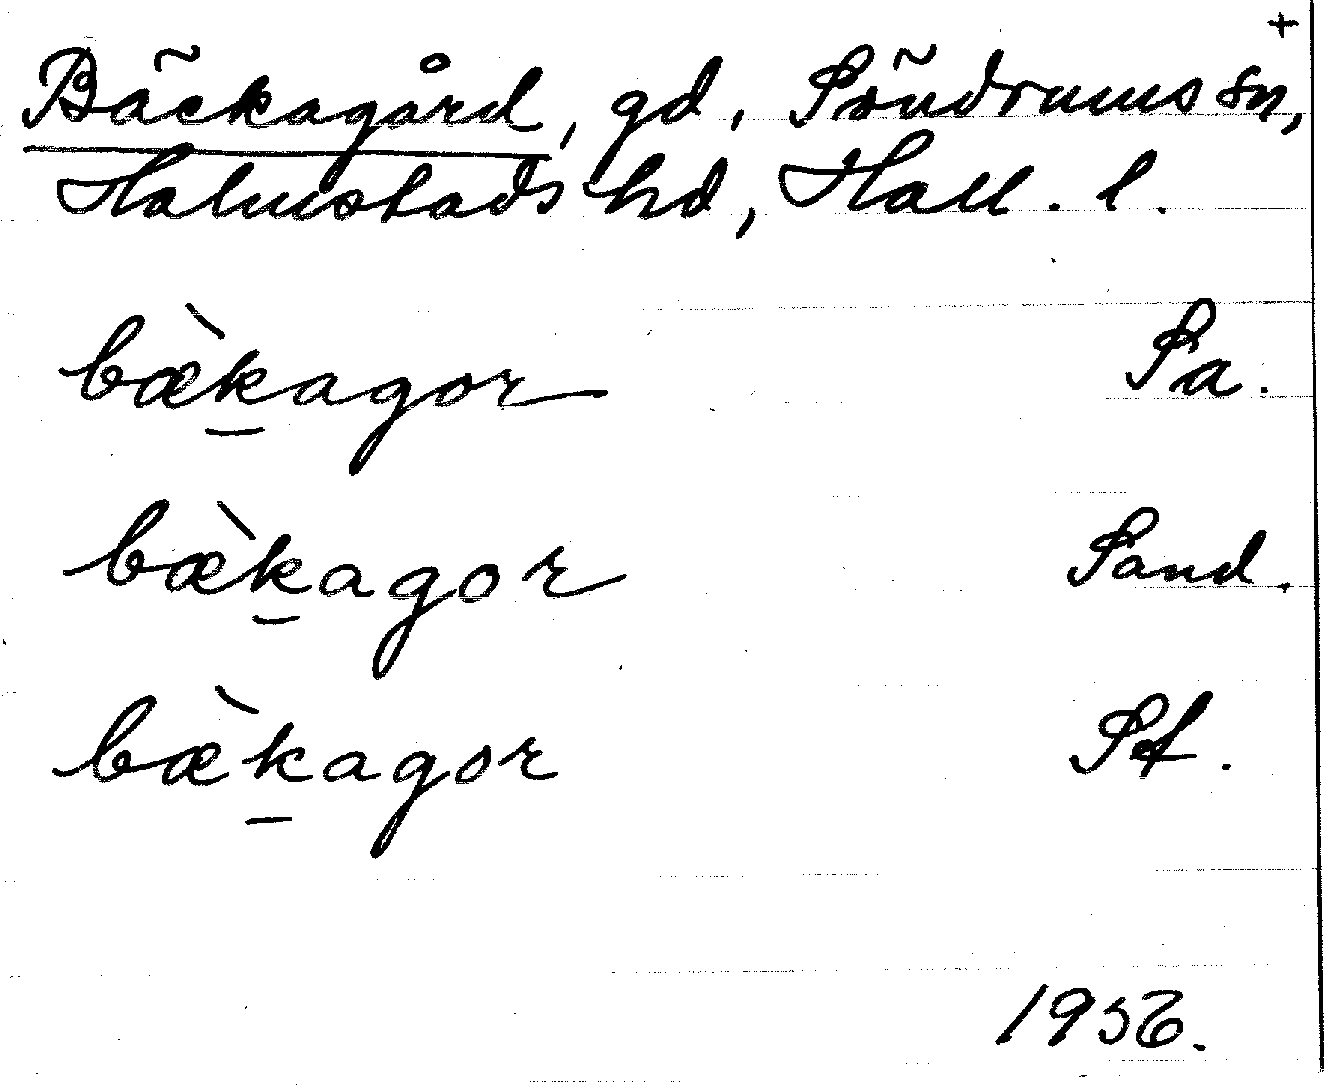 +
Bäckagård, gd, Söndrums sn,
Halmstads hd, Hall. l.
bæ̀kagor Sa.
bæ̀kagor Sand.
bæ̀kagor Sf.
1956.